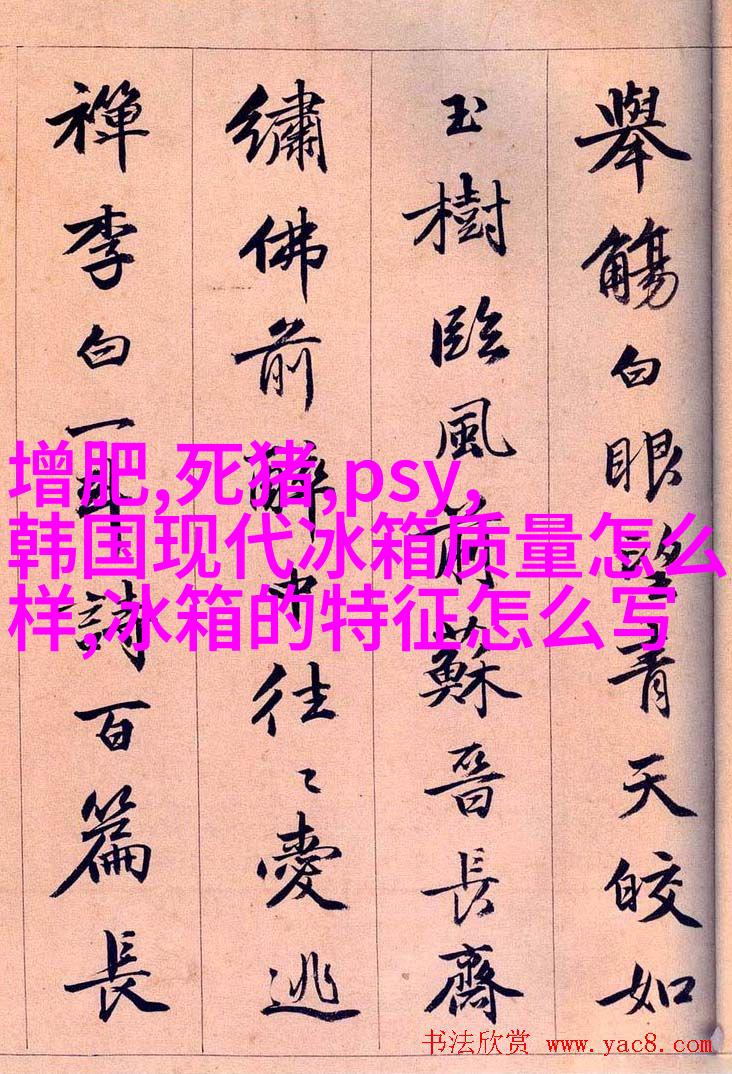 舉觴白眼望青天皎如
玉樹臨風前蘇晉長齋
繡佛前醉中往〻愛逃
禪李白一斗詩百篇長
增肥,死猪,psy,
韩国现代冰箱质量怎么
样,冰箱的特征怎么写
书法欣赏 www.yac8.com